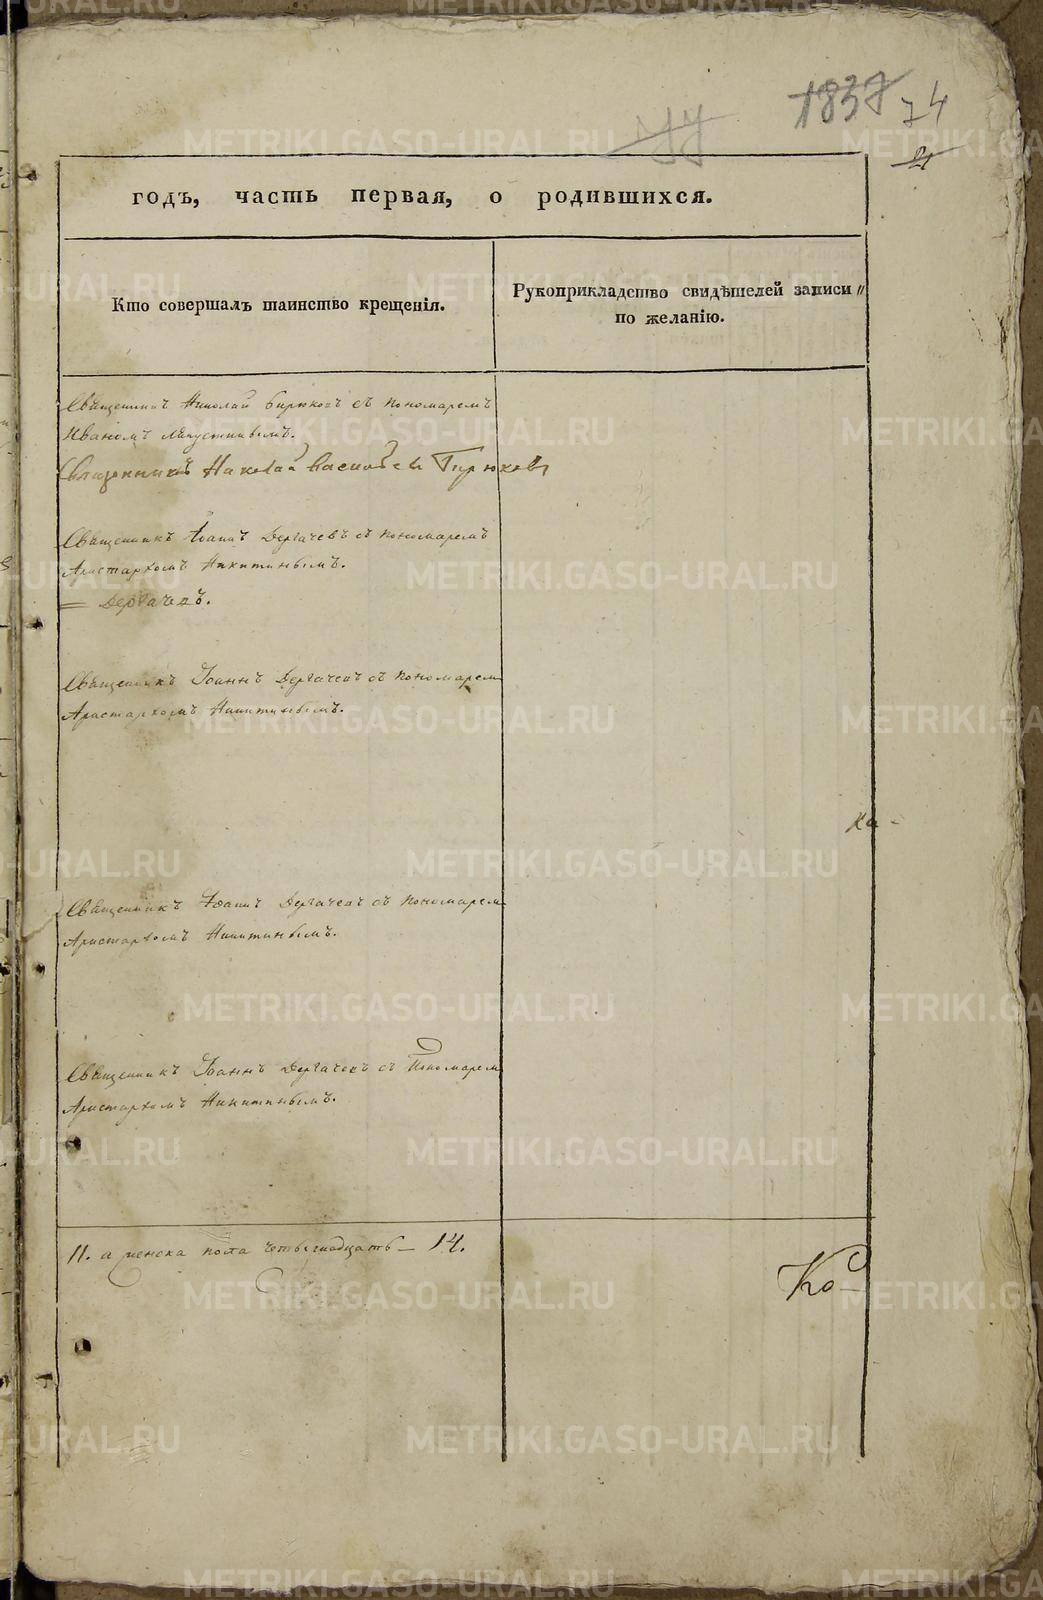 1837 74
77
21
годъ, часть первая, о родившихся.
Кто совершалъ таинство крещенія.
Рукоприкладство свидѣтелей записи
по желанію.
Священникъ Николай Бирюковъ съ пономаремъ
Иваномъ
Священникъ Николай Бирюковъ
Священникъ Іоаннъ Дергачевъ съ пономаремъ
Аристархомъ Никитинымъ.
= Дергачевъ.
Священникъ Іоаннъ Дергачевъ съ пономарем
Аристархомъ Никитинымъ.
Ка -
Священникъ Іоаннъ Дергачевъ съ пономарем
Аристархомъ Никитинымъ.
Священникъ Іоаннъ Дергачевъ съ Пономарем
Аристархомъ Никитинымъ.
11. а женска пола четырнадцать – 14.
Ко-
METRIKI.GASO-URAL.RU